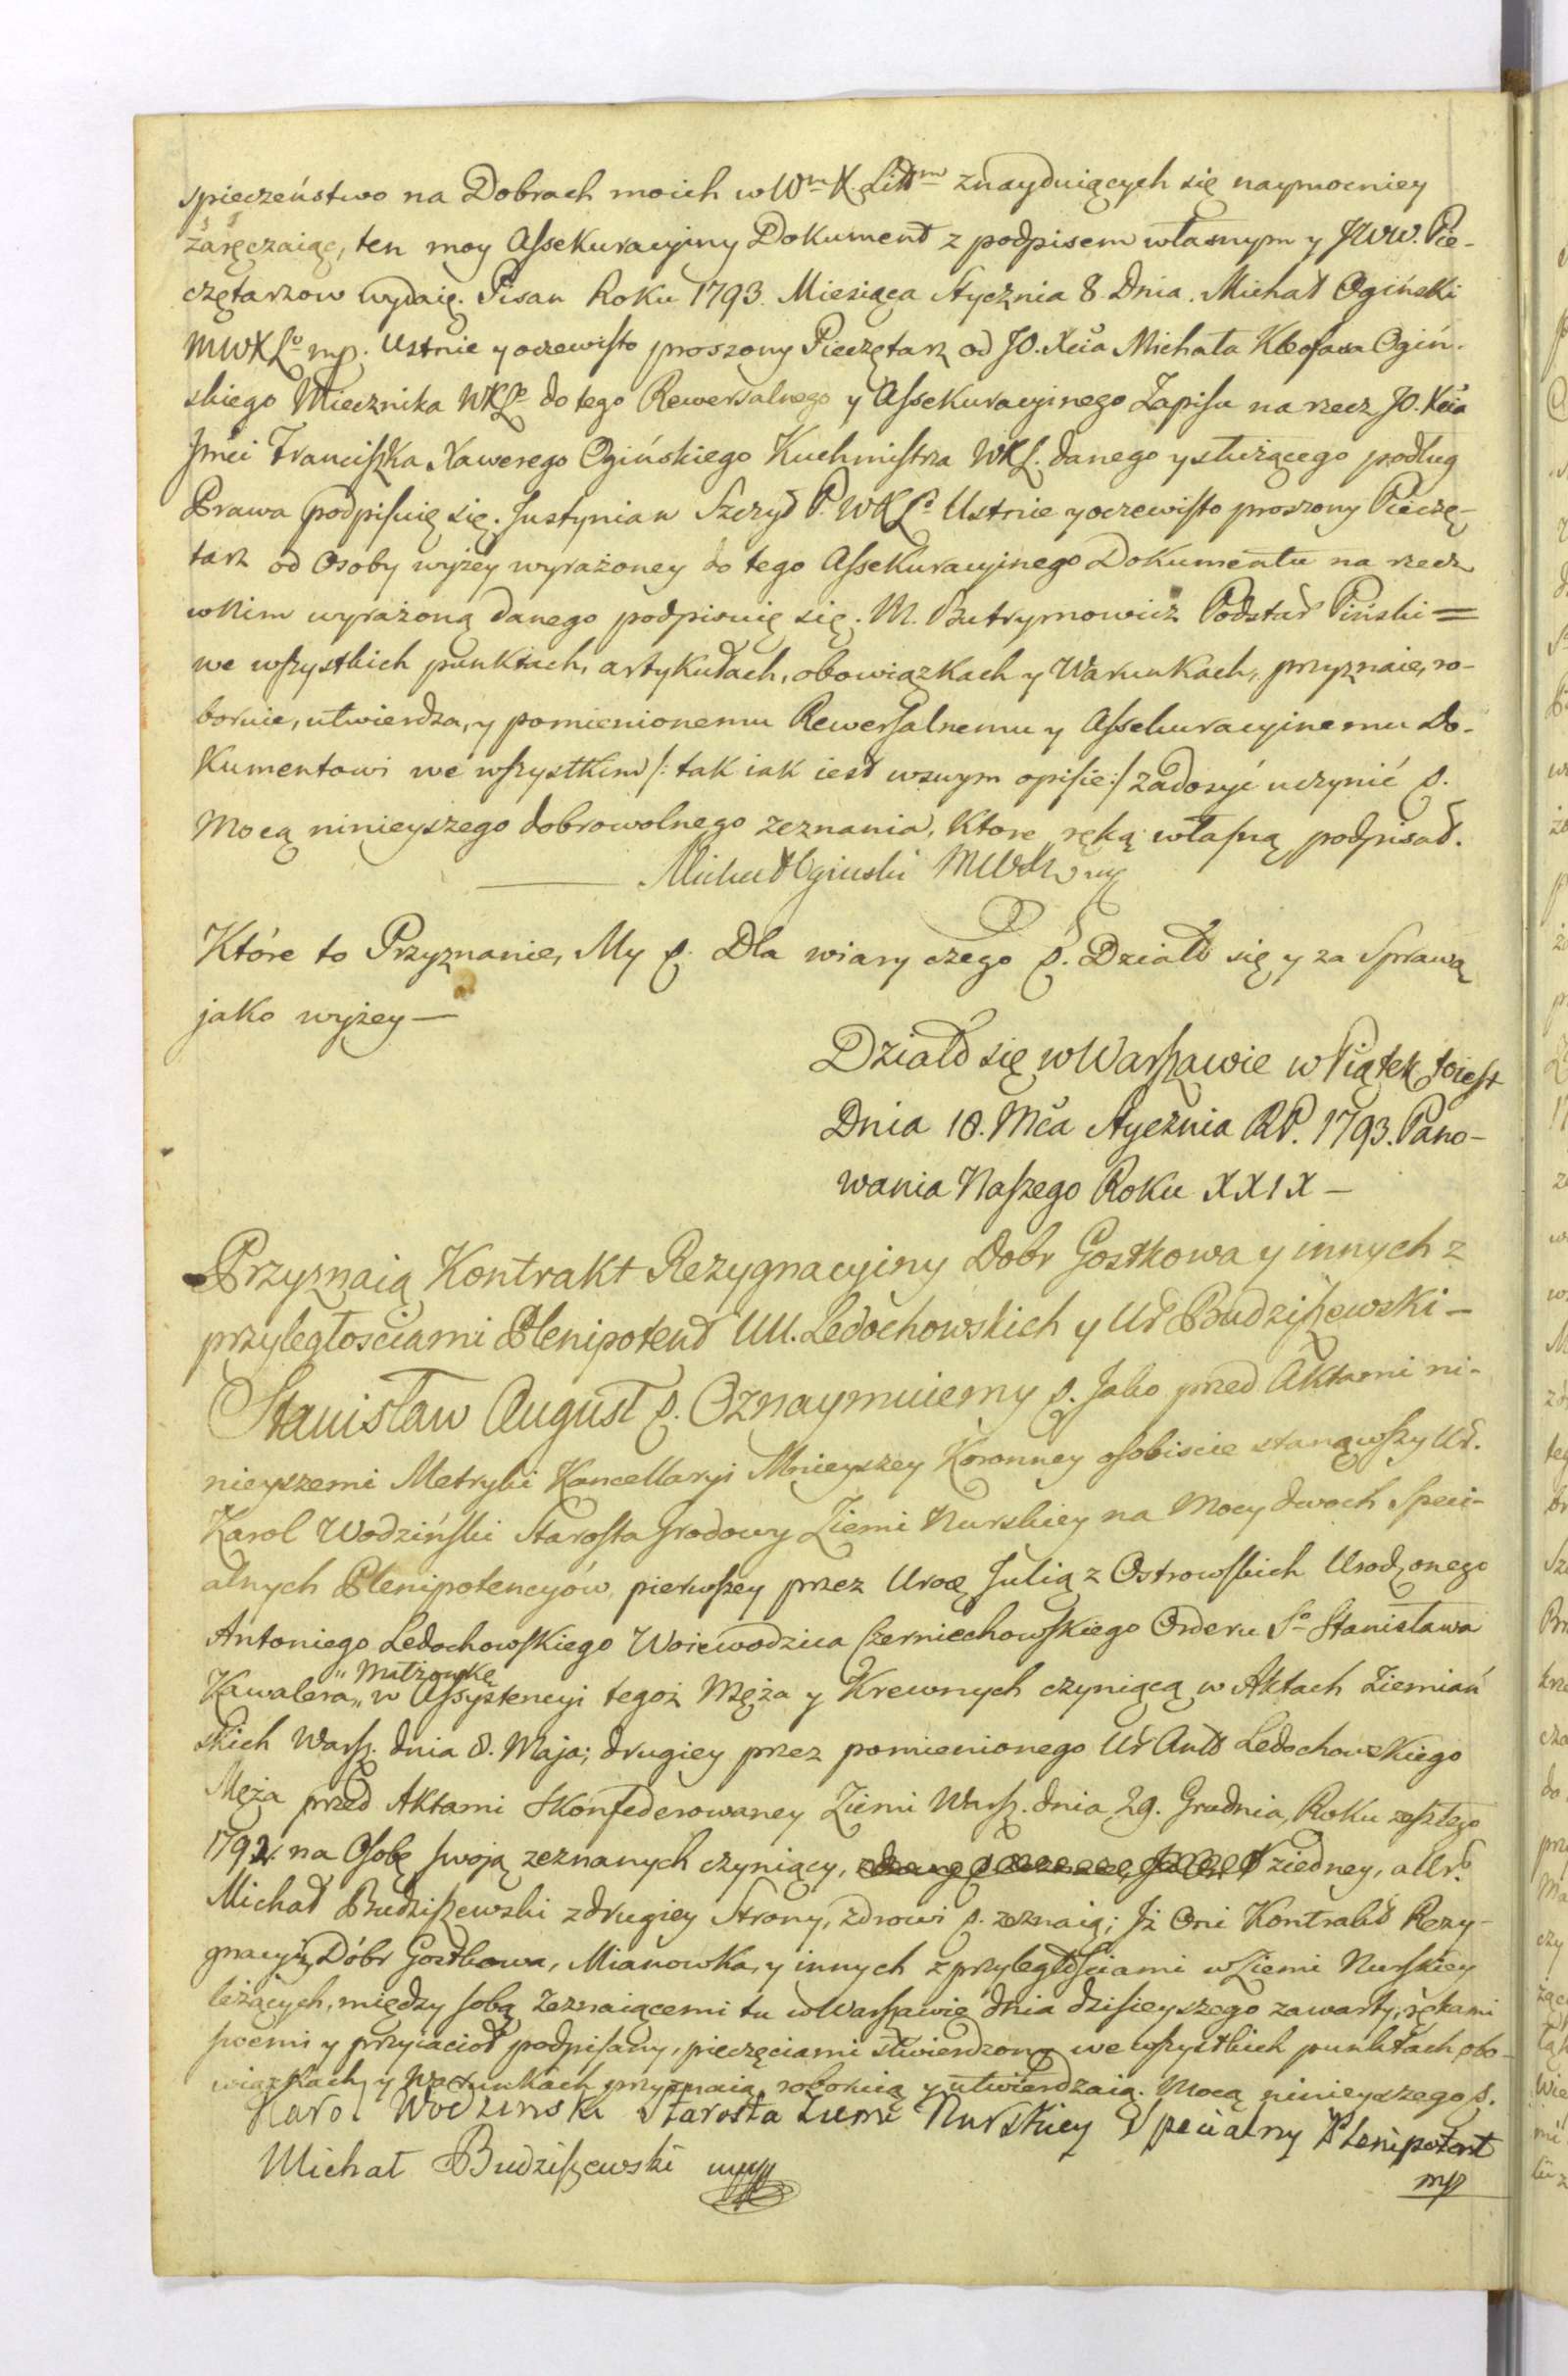 spieczeństwo na Dobrach moich w Wm X. Littm znayduiących się naymocniey
zaręczaiąc, ten moy Assekuracyiny Dokument z podpisem własnym y JWW. Pie-
czętarzow wydaię. Pisan Roku 1793. Miesiąca Stycznia 8. Dnia. Michał Ogiński
MWXLo mp. Ustnie y oczewisto proszony Pieczętarz od JO. Xcia Michała Kleofasa Ogiń-
skiego Miecznika WXLo do tego Rewersalnego y Assekuracyinego Zapisu na rzecz JO. Xcia
Jmci Franciszka Xawerego Ogińskiego Kuchmistrza WXL. danego y służącego podług
Prawa podpisuię się. Justynian Szczyt P. WXLo Ustnie y oczewisto proszony Pieczę-
tarz od Osoby wyżey wyrażoney do tego Assekuracyinego Dokumentu na rzecz
w Nim wyrażoną danego podpisuię się. M. Butrymowicz Podstar Piński =
we wszystkich punktach, artykułach, obowiązkach y Warunkach, przyznaie, ro-
boruie, utwierdza, y pomienionemu Rewersalnemu y Assekuracyinemu Do-
kumentowi we wszystkim /: tak iak iest w swym opisie :/ zadosyć uczynić p.
Mocą ninieyszego dobrowolnego zeznania, Ktore ręką własną podpisał.
Michał Ogiński MWXL mp
Które to Przyznanie, My p. Dla wiary czego p. Działo się y za Sprawą
jako wyżey —
Działo się w Warszawie w Piątek toiest
Dnia 18. Mca Stycznia RP. 1793. Pano-
wania Naszego Roku XXIX —
Przyznaią Kontrakt Rezygnacyiny Dobr Gostkowa y innych z
przyległosciami Plenipotent UU. Ledochowskich y Ur Budziszewski —
Stanisław August p. Oznaymuiemy p. Jako przed Aktami ni-
nieyszemi Metryki Kancellaryi Mnieyszey Koronney osobiscie stanąwszy Ur.
Karol Wodziński Starosta Grodowy Ziemi Nurskiey na Mocy dwoch Speci-
alnych Plenipotencyów, pierwszey przez Uroę Julią z Ostrowskich Urodzonego
Antoniego Ledochowskiego Woiewodzica Czerniechowskiego Orderu So Stanisława
Kawalera „Małżonkę„ w Assystencyi tegoż Męża y Krewnych czyniącą w Aktach Ziemiań
skich Warsz. dnia 8. Maja; drugiey przez pomienionego Ur Ant Ledochowskiego
Męża przed Aktami Skonfederowaney Ziemi Warsz. dnia 29. Grudnia, Roku zeszłego
1792. na Osobę swoją zeznanych czyniący, z iedney, a Ur.
Michał Budziszewski z drugiey Strony, zdrowi p. zeznaią; Iż Oni Kontrakt Rezy-
gnacyiny Dóbr Gostkowa, Mianowka, y innych z przyległosciami w Ziemi Nurskiey
leżących, między sobą zeznaiącemi tu w Warszawie dnia dzisieyszego zawarty, rękami
swemi y przyiacioł podpisany, pieczęciami stwierdzony we wszystkich punktach, obo-
wiązkach, y Warunkach przyznaią, roboruią y utwierdzaią. Mocą ninieyszego p.
Karol Wodzinski Starosta Ziemi Nurskiey Specialny Plenipotent
mp
Michał Budziszewski mp